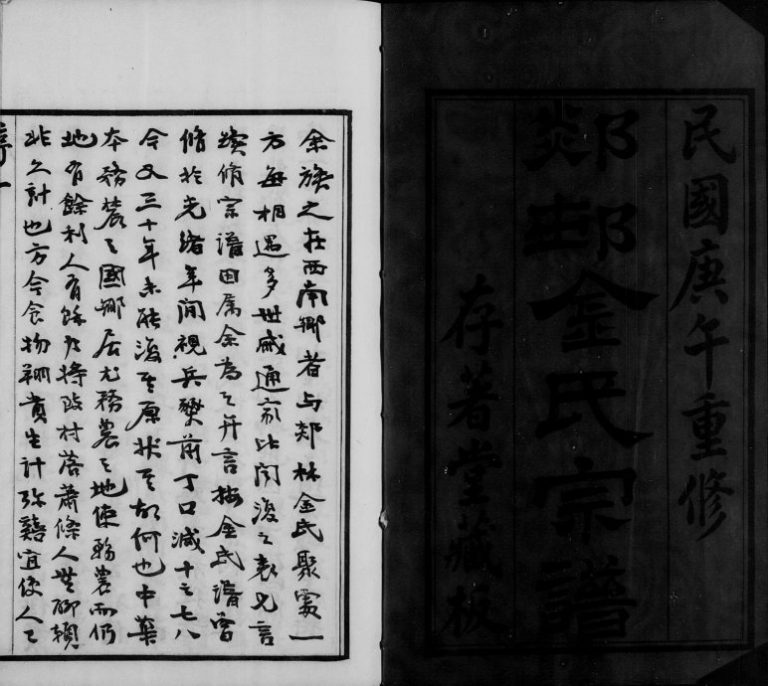 民國庚午重修
郯金氏宗譜
存著堂藏板
余族之在西南鄉者与郯林金氏聚處一
方每相過多世戚通家比聞復之表兄言
續脩宗譜因屬余為之弁言按金氏譜曾
脩於光緒年間視兵燹前丁口減十之七八
今又三十年未能復其原狀其故何也中華
本務農之國鄉居尤務農之地使務農而仍
地有餘利人有餘力將改村落蕭條人無聊賴
非久計也方今食物翔貴生計弥囏宜使人
序一